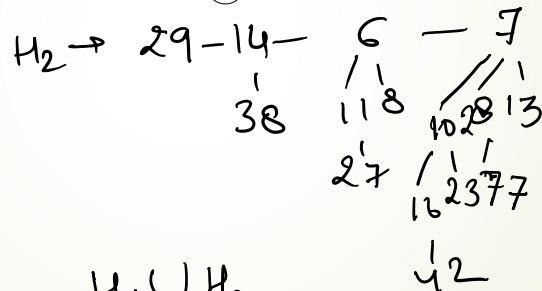 H₂ → 29 – 14 – 6 – 7
38 11 8 10 28 13
27 16 23 77
42